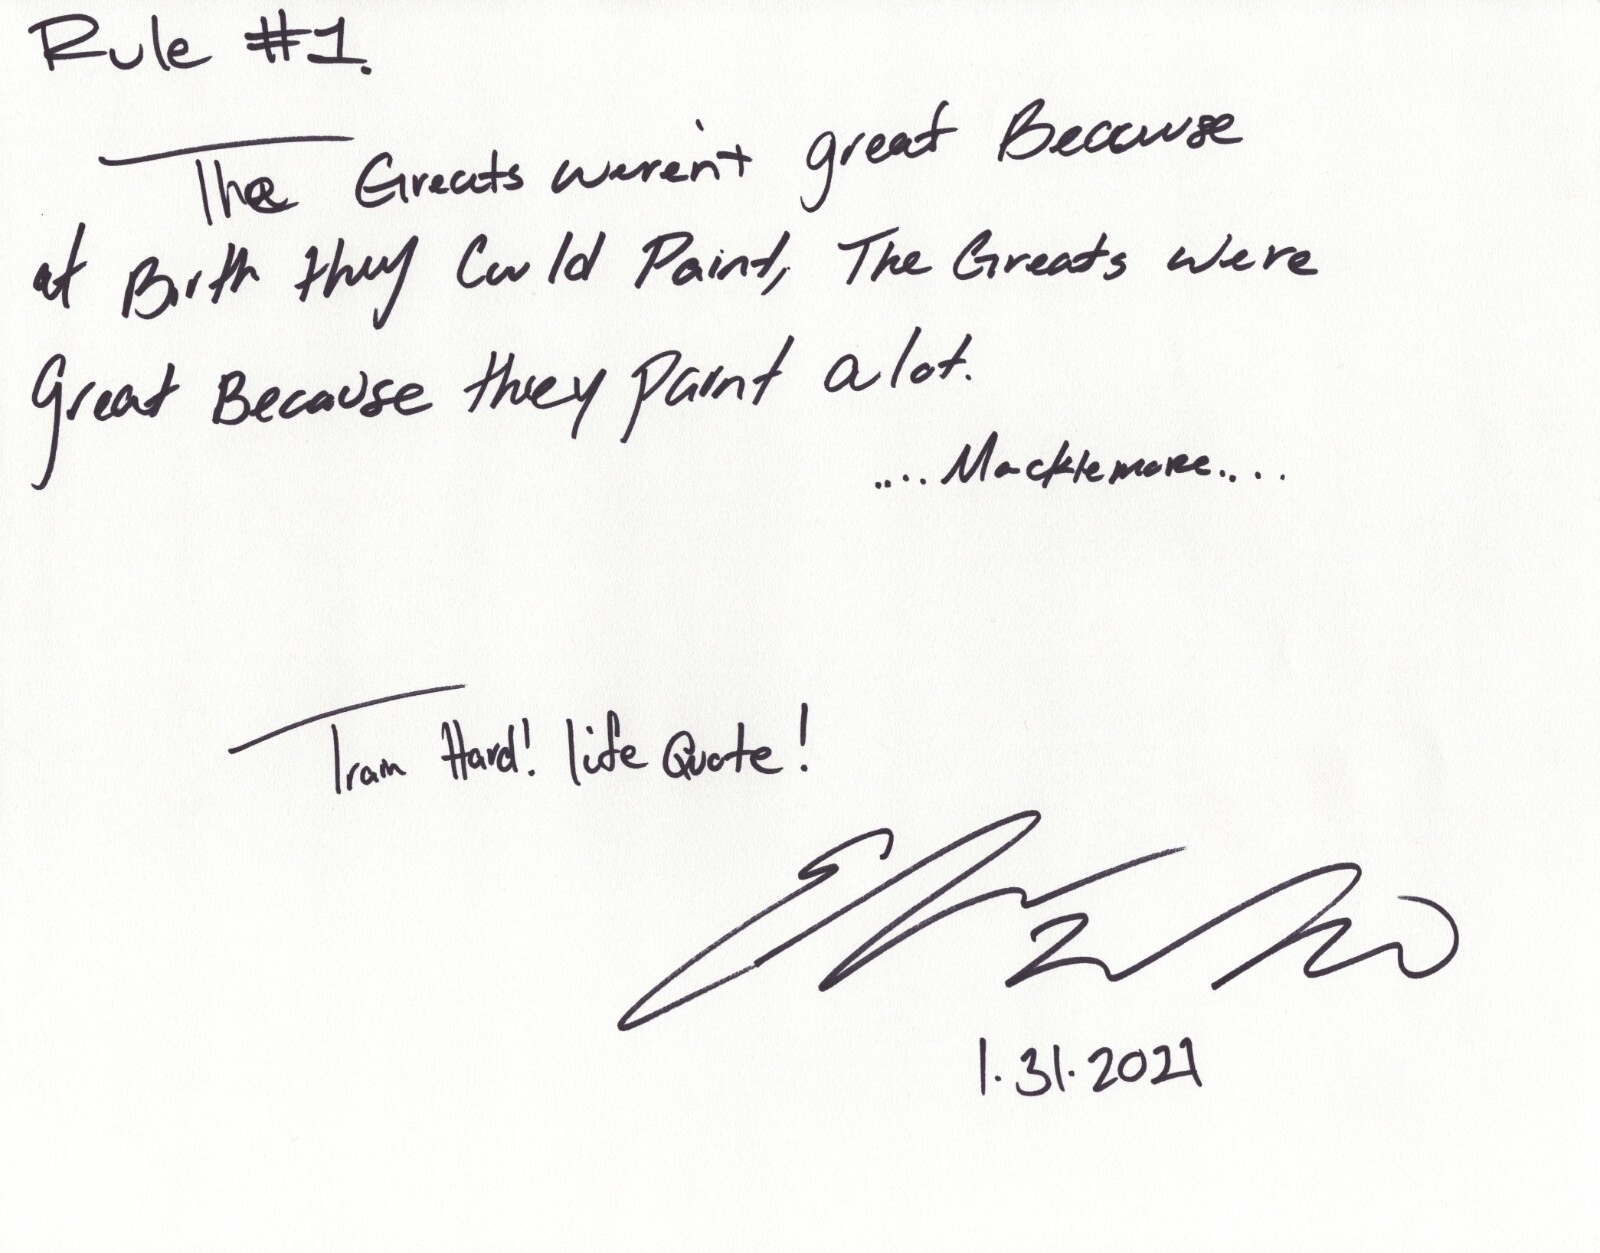 Rule #1.
The Greats weren't great Because
at Birth they Could Paint, The Greats were
great Because they paint a lot.
....Macklemore....
Train Hard! life Quote!
1.31.2021